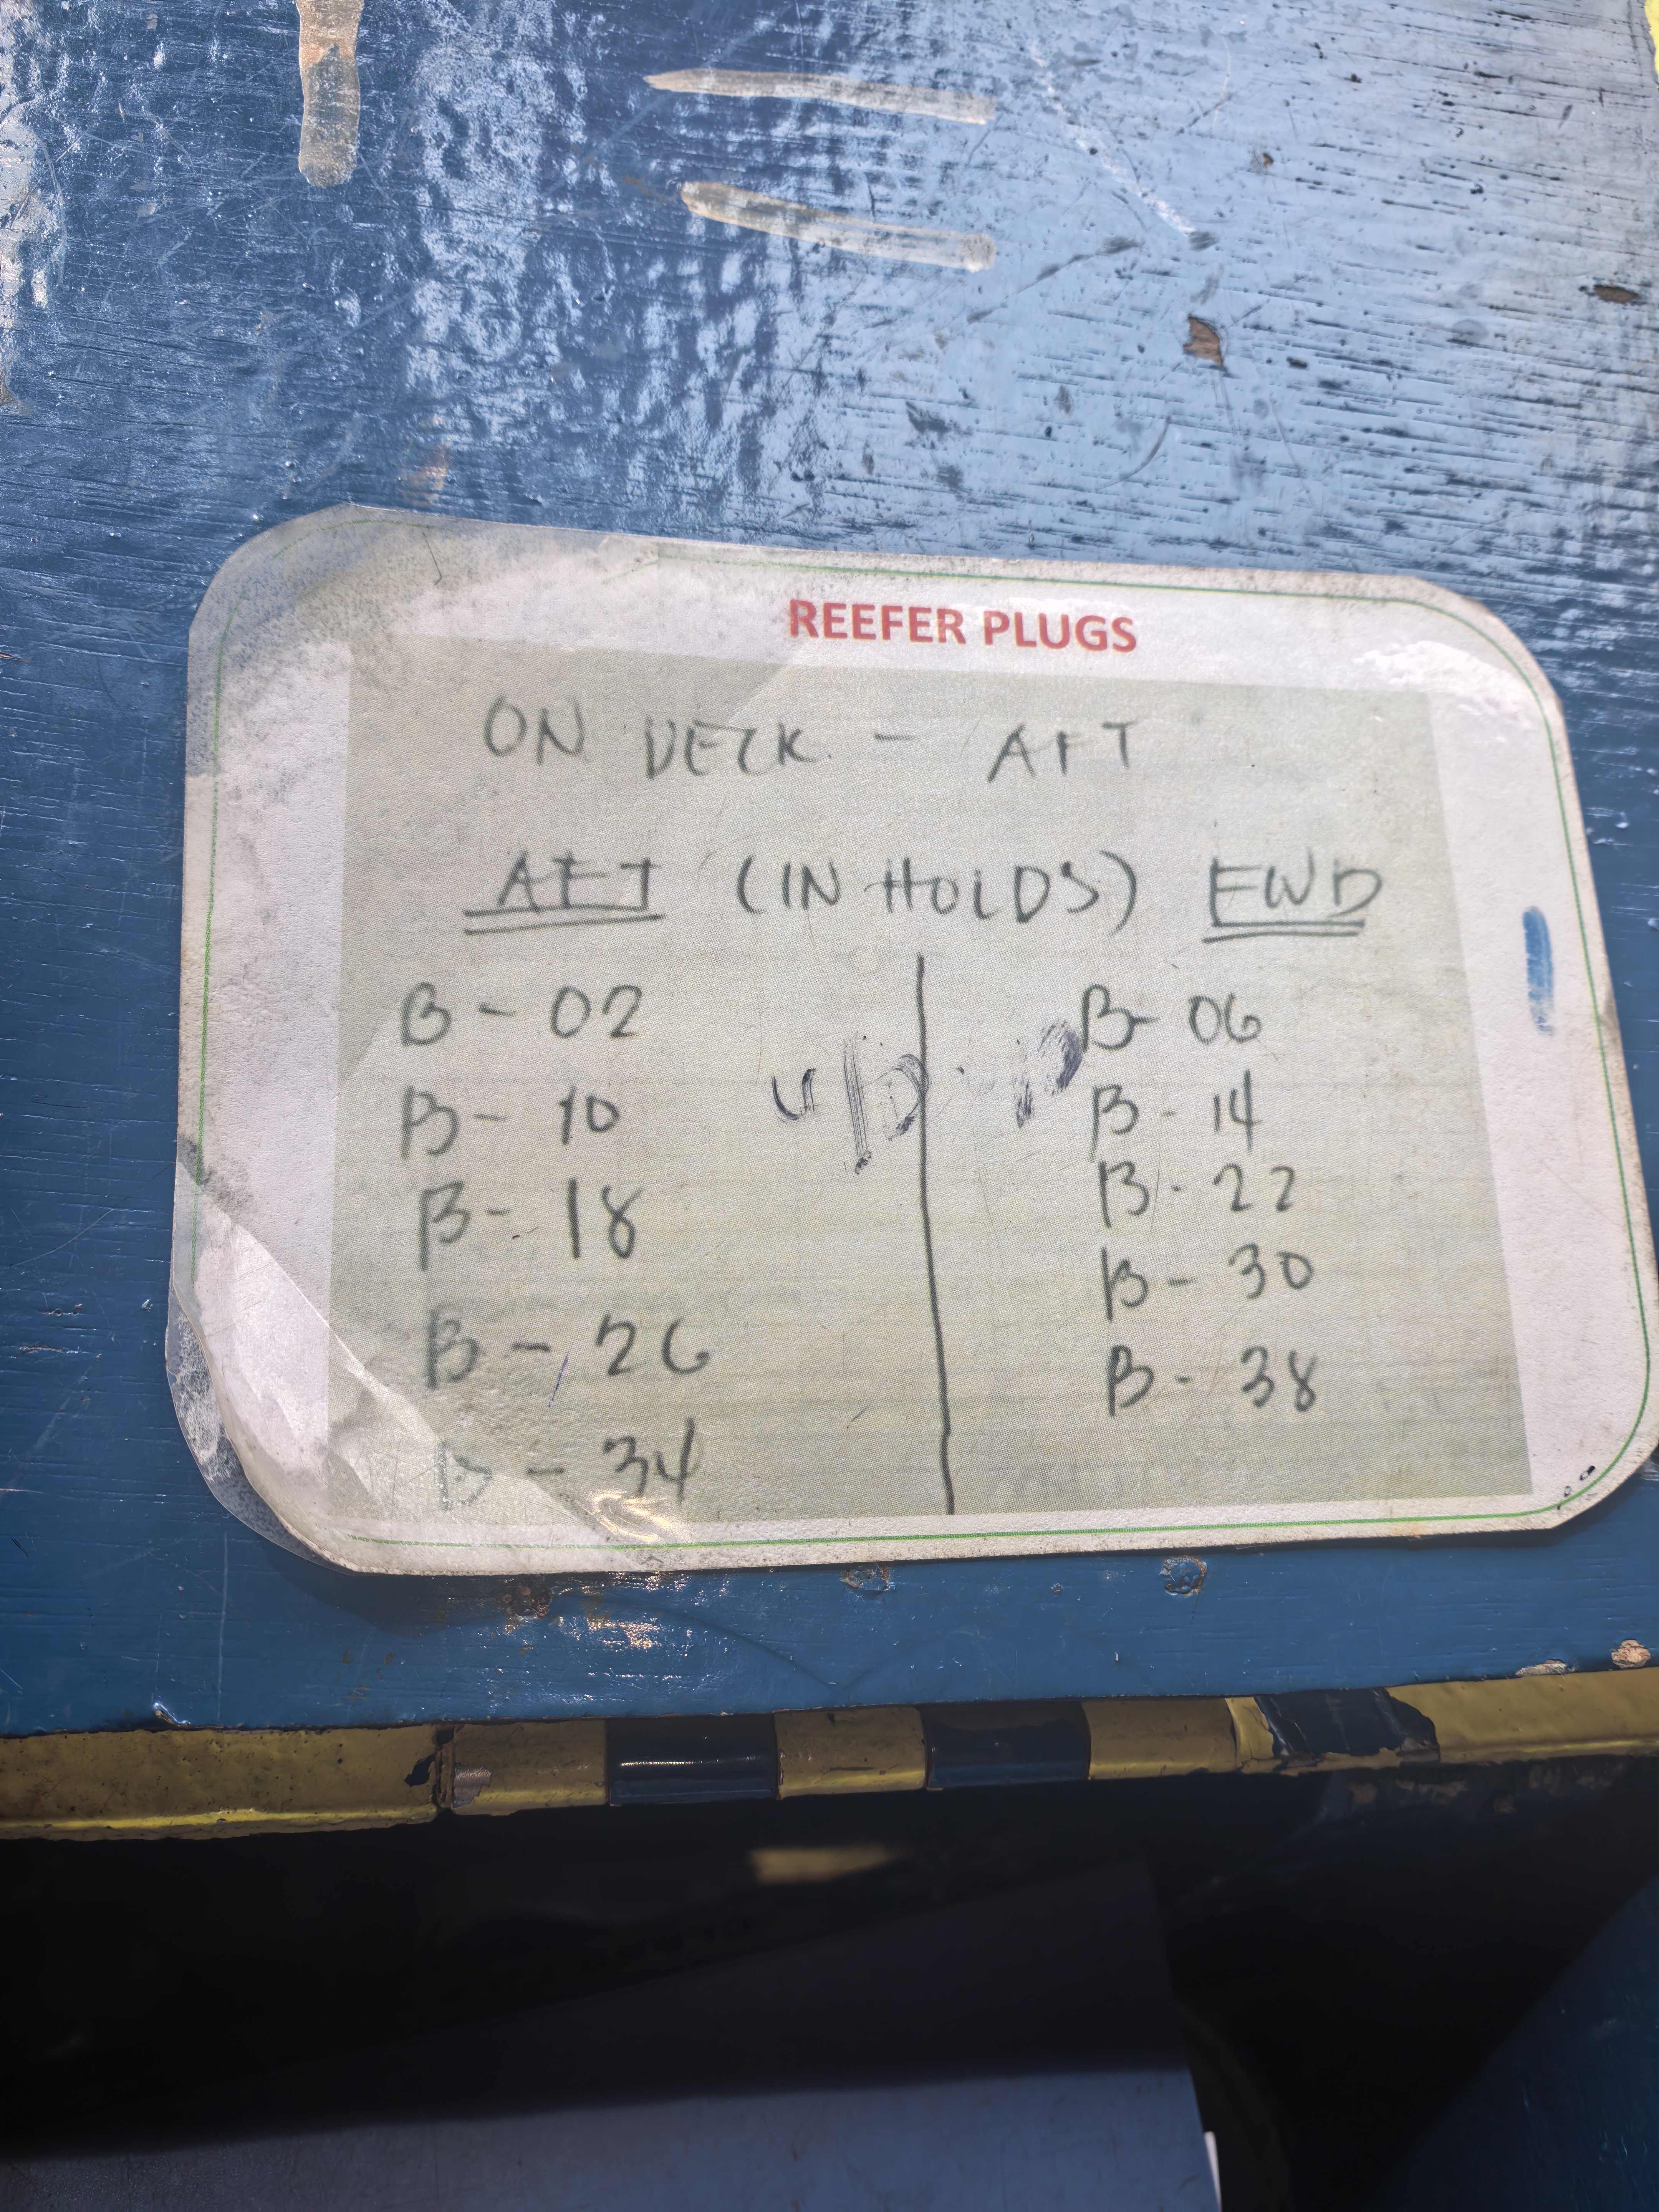 REEFER PLUGS
ON DECK - AFT
AFT (IN HOLDS) FWD
B - 02
B - 10
B - 18
B - 26
B - 34
B - 06
B - 14
B - 22
B - 30
B - 38